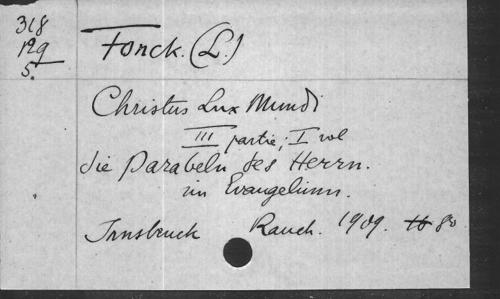 318
129
5.
Fonck. (L.)
Christus Lux Mundi
III partie; I vol
die Parabeln des Herrn.
im Evangelium.
Innsbruck Rauch. 1909. 8o